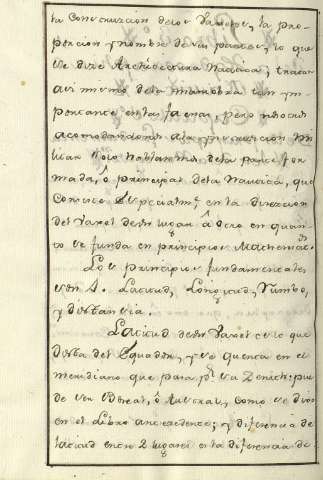 la Construccion delos Vaxeles, la pro-
porcion y nombre de sus partes, lo que
se dize Architectura Nautica; tratar
asi mismo dela maniobra tan im-
portante en las faenas, pero nosotros
acomodandonos ala instruccion
solo hablaremos dela parte for
mada, ô principal dela Nautica, que
Consiste especialmte en la direccion
del Vaxel de un lugar â otro en quan-
to se funda en principios Mathematicos
Los principios fundamentales
son 4. Latitud, Longitud, Rumbo,
y distancia.
Latitud de un Vaxel es lo que
dista del Equador, y se quenta en el
meridiano que passa pr su Zenith: pue
de ser Boreal, ô Austral, como se dixo
en el Libro antecedente; y diferencia de
latitud entre 2 lugares es la diferencia de